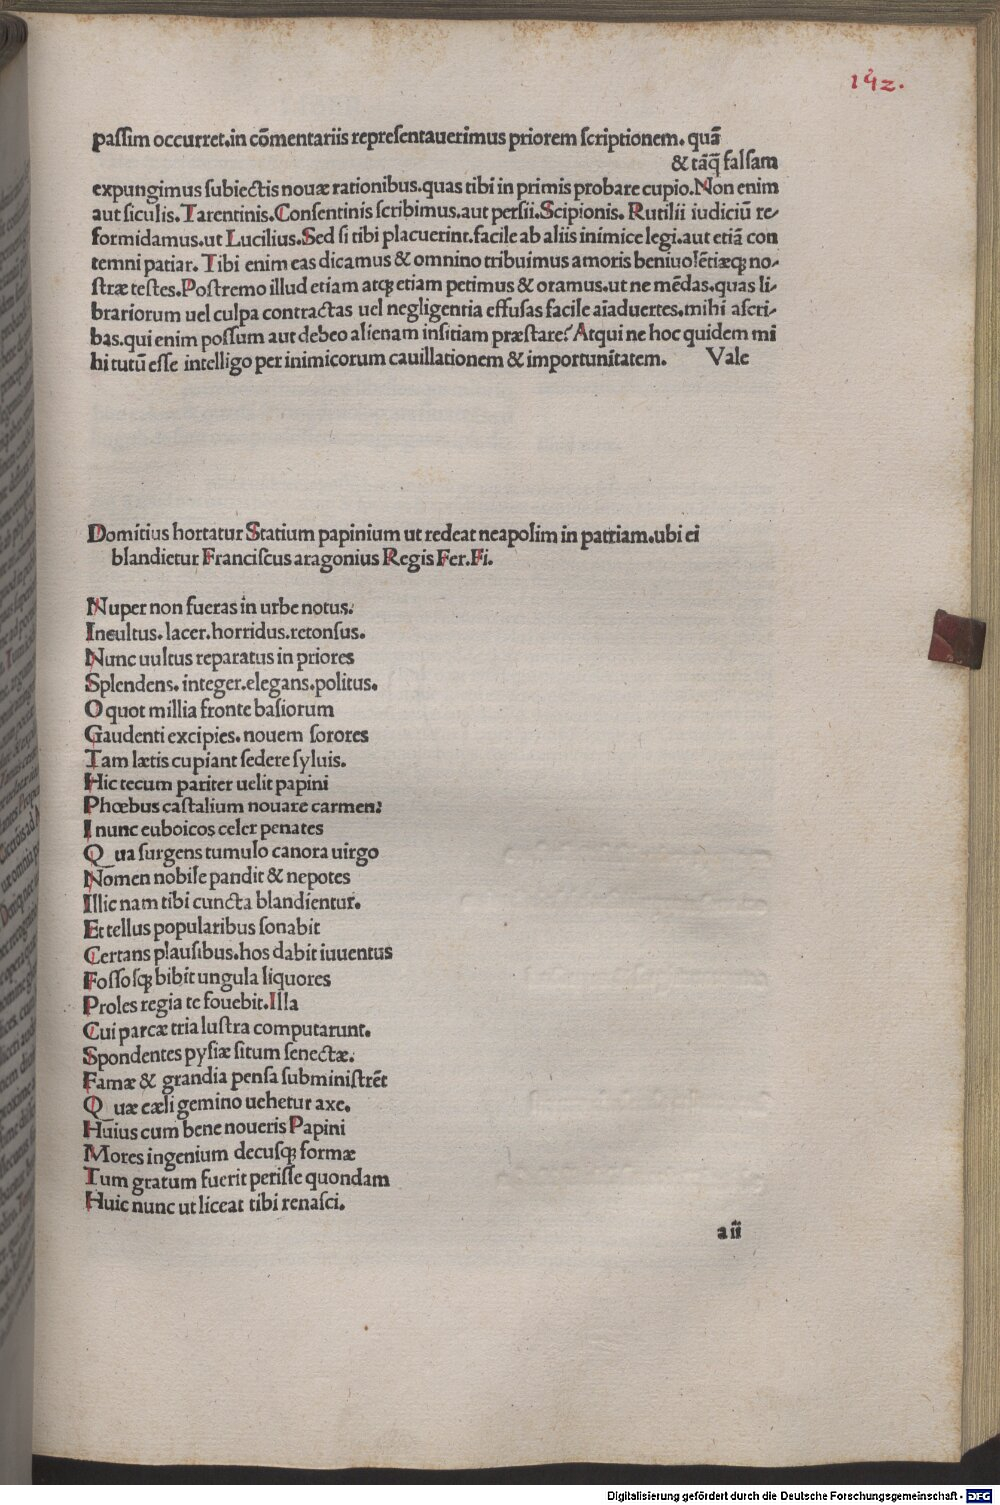 142.
passim occurret.in cōmentariis repreſentauerimus priorem ſcriptionem. quā
& tāq̄ falſam
expungimus ſubiectis nouæ rationibus.quas tibi in primis probare cupio.Non enim
aut ſiculis.Tarentinis.Conſentinis ſcribimus.aut perſii.Scipionis. Rutilii iudiciū re⸗
formidamus.ut Lucilius.Sed ſi tibi placuerint.facile ab aliis inimice legi.aut etiā con
temni patiar. Tibi enim eas dicamus & omnino tribuimus amoris beniuolētiæqꝫ no⸗
ſtræ teſtes.Poſtremo illud etiam atqꝫ etiam petimus & oramus.ut ne mēdas.quas li⸗
brariorum uel culpa contractas uel negligentia effuſas facile aīaduertes.mihi aſcri⸗
bas.qui enim poſſum aut debeo alienam inſitiam præſtare? Atqui ne hoc quidem mi
hi tutū eſſe intelligo per inimicorum cauillationem & importunitatem. Vale
Domitius hortatur Statium papinium ut redeat neapolim in patriam.ubi ei
blandietur Franciſcus aragonius Regis Fer.Fi.
Nuper non fueras in urbe notus.
Incultus. lacer. horridus.retonſus.
Nunc uultus reparatus in priores
Splendens. integer.elegans.politus.
O quot millia fronte baſiorum
Gaudenti excipies. nouem ſorores
Tam lætis cupiant ſedere ſyluis.
Hic tecum pariter uelit papini
Phœbus caſtalium nouare carmen:
I nunc euboicos celer penates
Qua ſurgens tumulo canora uirgo
Nomen nobile pandit & nepotes
Illic nam tibi cuncta blandientur.
Et tellus popularibus ſonabit
Certans plauſibus.hos dabit iuuentus
Foſſoſqꝫ bibit ungula liquores
Proles regia te fouebit.Illa
Cui parcæ tria luſtra computarunt.
Spondentes pyſiæ ſitum ſenectæ.
Famæ & grandia penſa ſubminiſtrēt
Quæ cæli gemino uehetur axe.
Huius cum bene noueris Papini
Mores ingenium decuſqꝫ formæ
Tum gratum fuerit periſſe quondam
Huic nunc ut liceat tibi renaſci.
a ii
Digitalisierung gefördert durch die Deutsche Forschungsgemeinschaft - DFG